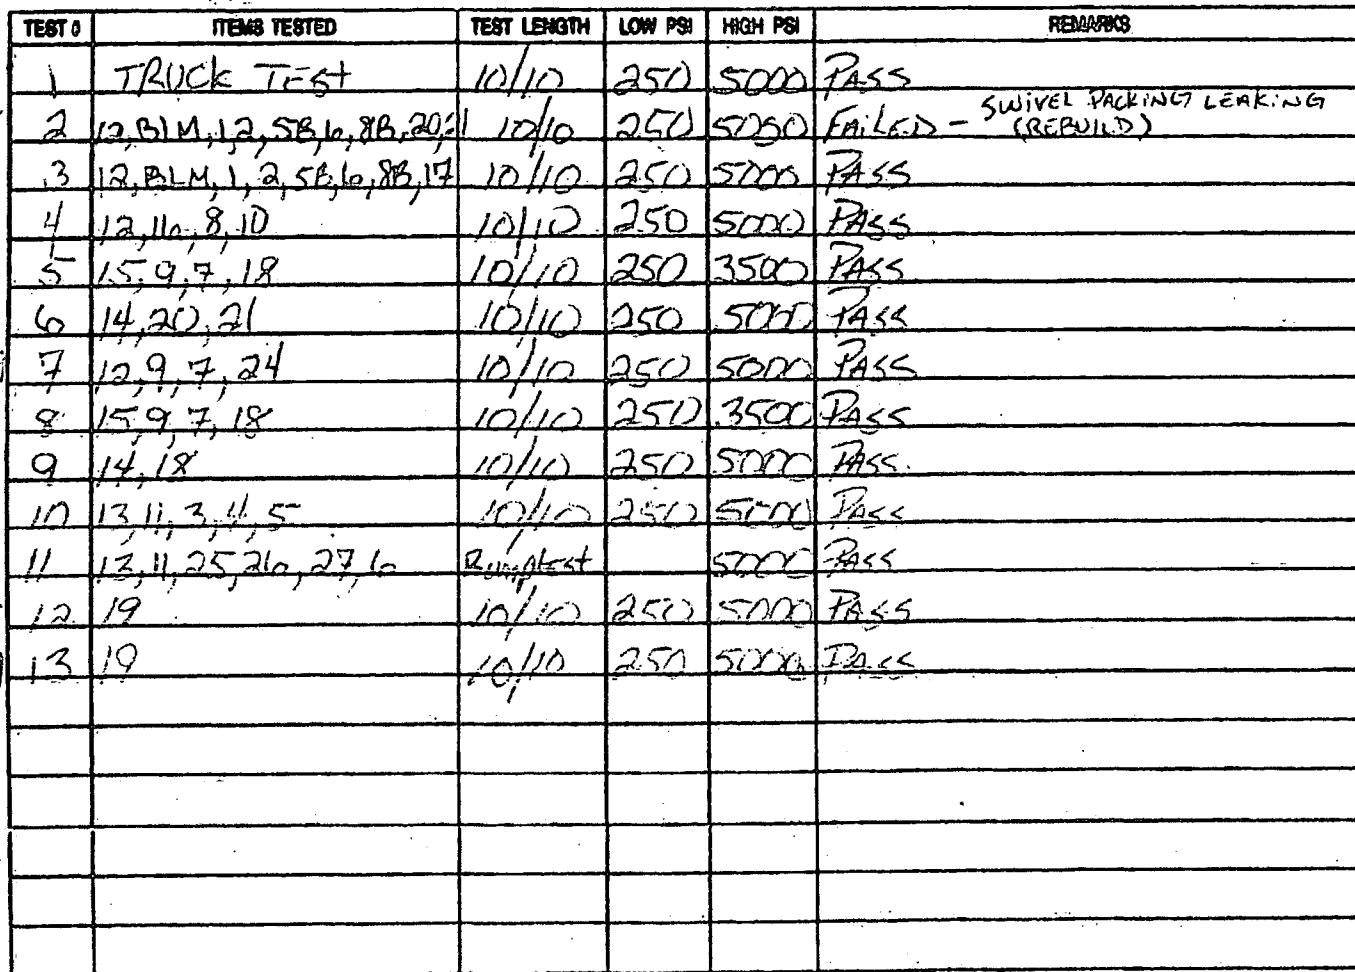 TEST # ITEMS TESTED TEST LENGTH LOW PSI HIGH PSI REMARKS
1 TRUCK TEST 10/10 250 5000 PASS
2 12,BLM,1,2,5B,6,8B,20, 10/10 250 5000 FAILED - SWIVEL PACKING LEAKING
(REBUILD)
3 12,BLM,1,2,5B,6,8B,17 10/10 250 5000 PASS
4 12,16,8,10 10/10 250 5000 PASS
5 15,9,7,18 10/10 250 3500 PASS
6 14,20,21 10/10 250 5000 PASS
7 12,9,7,24 10/10 250 5000 PASS
8 15,9,7,18 10/10 250 3500 PASS
9 14,18 10/10 250 5000 PASS.
10 13,11,3,4,5 10/10 250 5000 PASS
11 13,11,25,26,27,6 5000 PASS
12 19 10/10 250 5000 PASS
13 19 10/10 250 5000 PASS